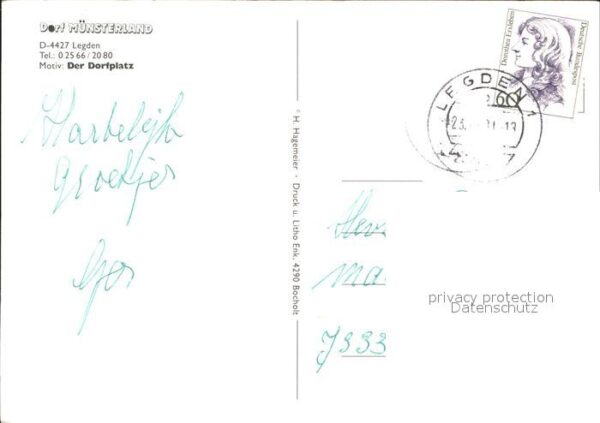 Dorf MÜNSTERLAND
D-4427 Legden
Tel.: 0 25 66 / 20 80
Motiv: Der Dorfplatz
Hartelijk
Groetjes
H. Hagemeier • Druck u. Litho Enk. 4290 Bocholt
Dorothea Erxleben
Deutsche Bundespost
60
LEGDEN 1
Hev
Ma
7533
privacy protection
Datenschutz